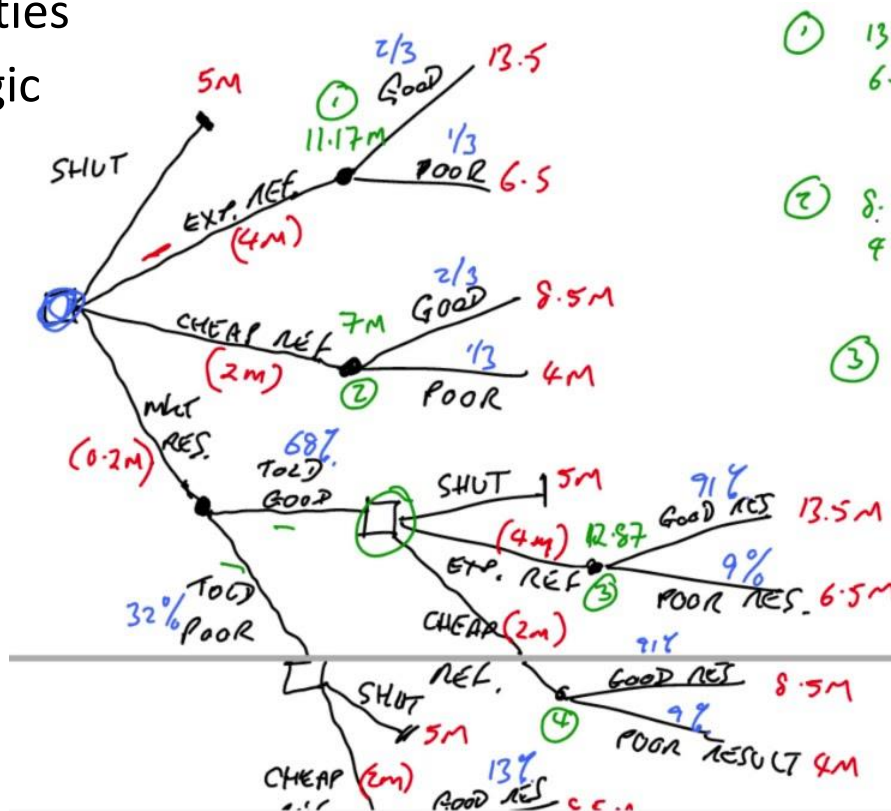 ties
gic
SHUT
5M
EXP. REF.
(4M)
1
11.17M
2/3
GOOD
13.5
1/3
POOR
6.5
1
13
6.
2
8.
4
3
CHEAP REF
(2m)
7M
2
2/3
GOOD
8.5M
1/3
POOR
4M
MKT
RES.
(0.2M)
68%
TOLD
GOOD
32%
TOLD
POOR
SHUT
5M
(4m)
EXP. REF
12.87
3
91%
GOOD RES
13.5M
9%
POOR RES.
6.5M
CHEAP (2m)
REF.
4
91%
GOOD RES
8.5M
9%
POOR RESULT
4M
SHUT
5M
CHEAP (2m)
13%
GOOD RES